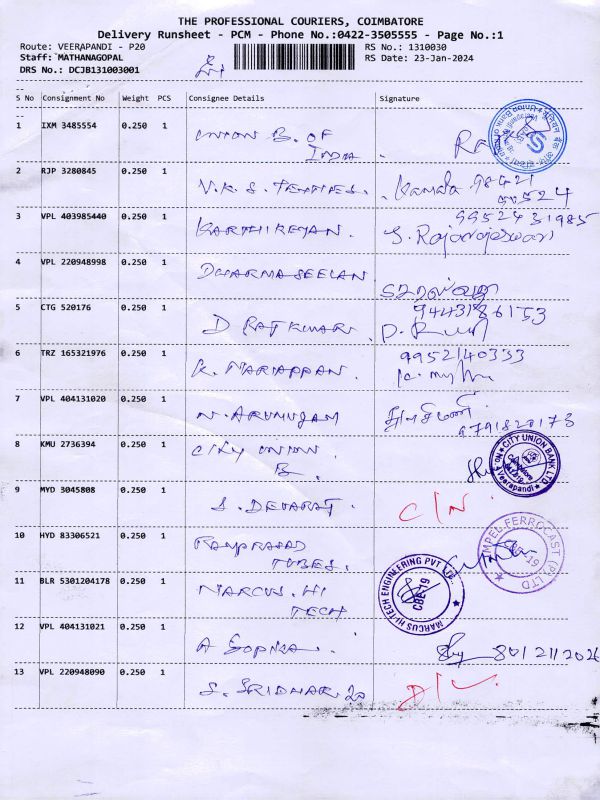 THE PROFESSIONAL COURIERS, COIMBATORE
Delivery Runsheet - PCM - Phone No.:0422-3505555 - Page No.:1
Route: VEERAPANDI - P20 RS No.: 1310030
Staff: MATHANAGOPAL RS Date: 23-Jan-2024
DRS No.: DCJB131003001
S No Consignment No Weight PCS Consignee Details Signature
1 IXM 3485554 0.250 1 UNION B. OF
INDIA
2 RJP 3280845 0.250 1 V.K.S. TEMPLES. Kamala 98421
3 VPL 403985440 0.250 1 KARTHIKEYAN. 9952431985
S. Rajarajeswari
4 VPL 220948998 0.250 1 DHARMASEELAN
5 CTG 520176 0.250 1 D RAJKUMAR. 9443186153
6 TRZ 165321976 0.250 1 K. MARIAPPAN. 9952140333
7 VPL 404131020 0.250 1 N. ARUMUGAM
9791820173
8 KMU 2736394 0.250 1 CITY UNION
B.
CITY UNION BANK LTD
Veerapandi
9 MYD 3045808 0.250 1 S. DEVARAJ. C/N.
10 HYD 83306521 0.250 1 RAMPRASAD
TUBES.
IMPEL FERROCAST (P) LTD
11 BLR 5301204178 0.250 1 MARCUS. HI
TECH
MARCUS HI-TECH ENGINEERING PVT. LTD.
CBE-19
12 VPL 404131021 0.250 1 A GOPIKA.
13 VPL 220948090 0.250 1 S. SRIDHAR